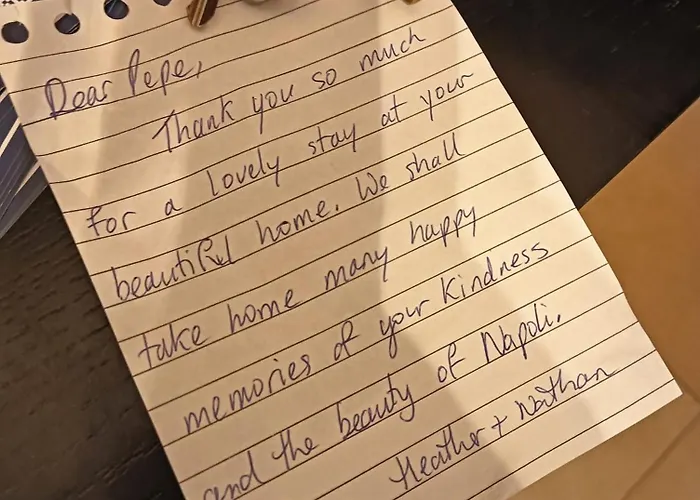 Dear Pepe,
Thank you so much
for a lovely stay at your
beautiful home. We shall
take home many happy
memories of your kindness
and the beauty of Napoli.
Heather + Nathan